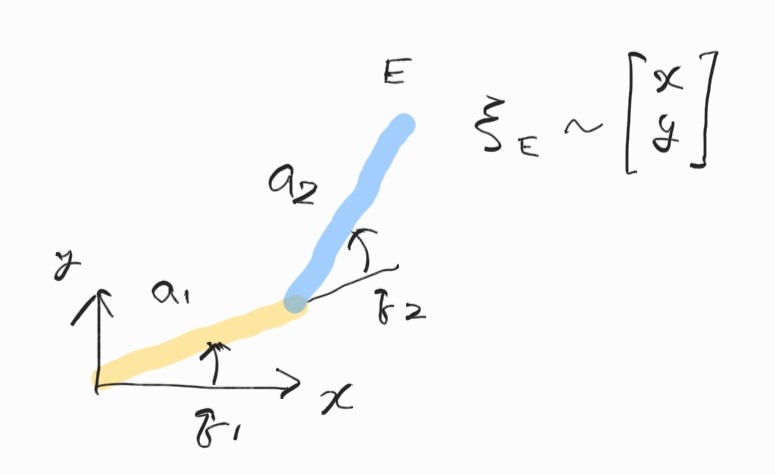 E
ξ_E ~ [x y]
a₂
y
a₁
q₂
x
q₁